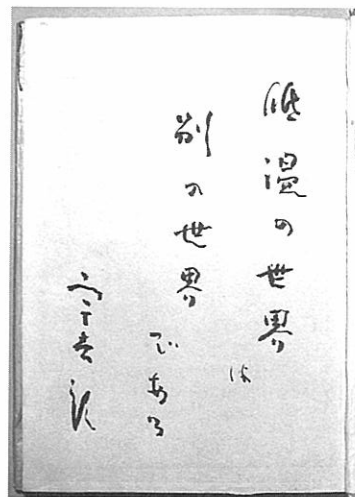 低温の世界は
別の世界
である
宇吉郎